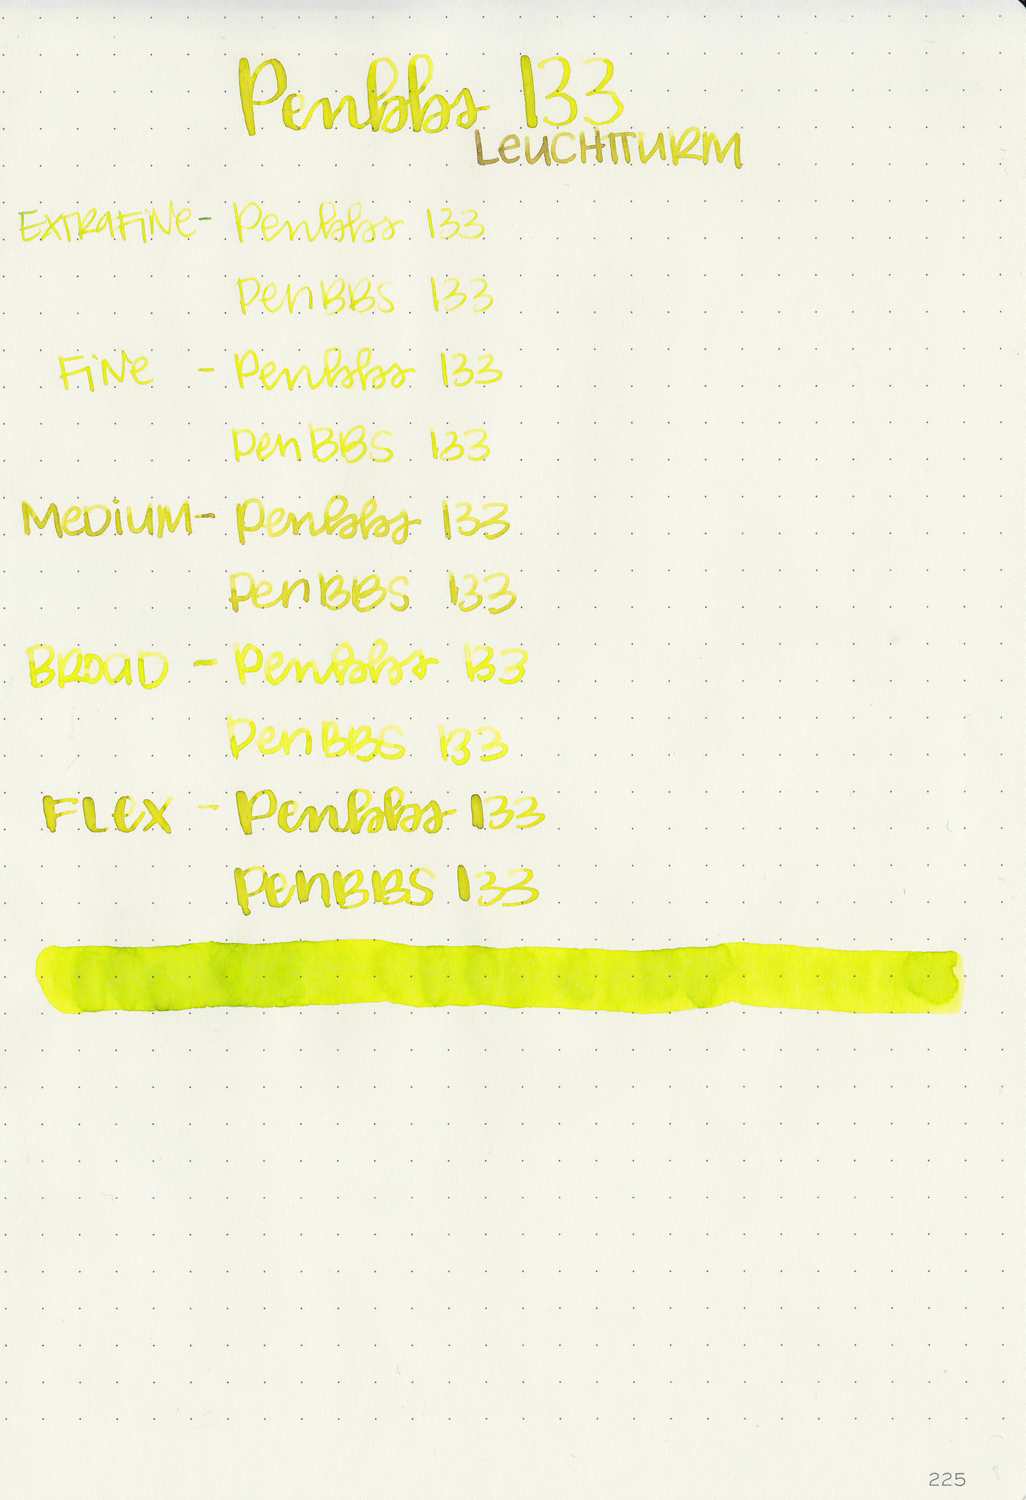 Penbbs 133
LEUCHTTURM
EXTRAFINE - Penbbs 133
PenBBS 133
FINE - Penbbs 133
PenBBS 133
MEDIUM - Penbbs 133
PenBBS 133
BROAD - Penbbs 133
PenBBS 133
FLEX - Penbbs 133
PenBBS 133
225